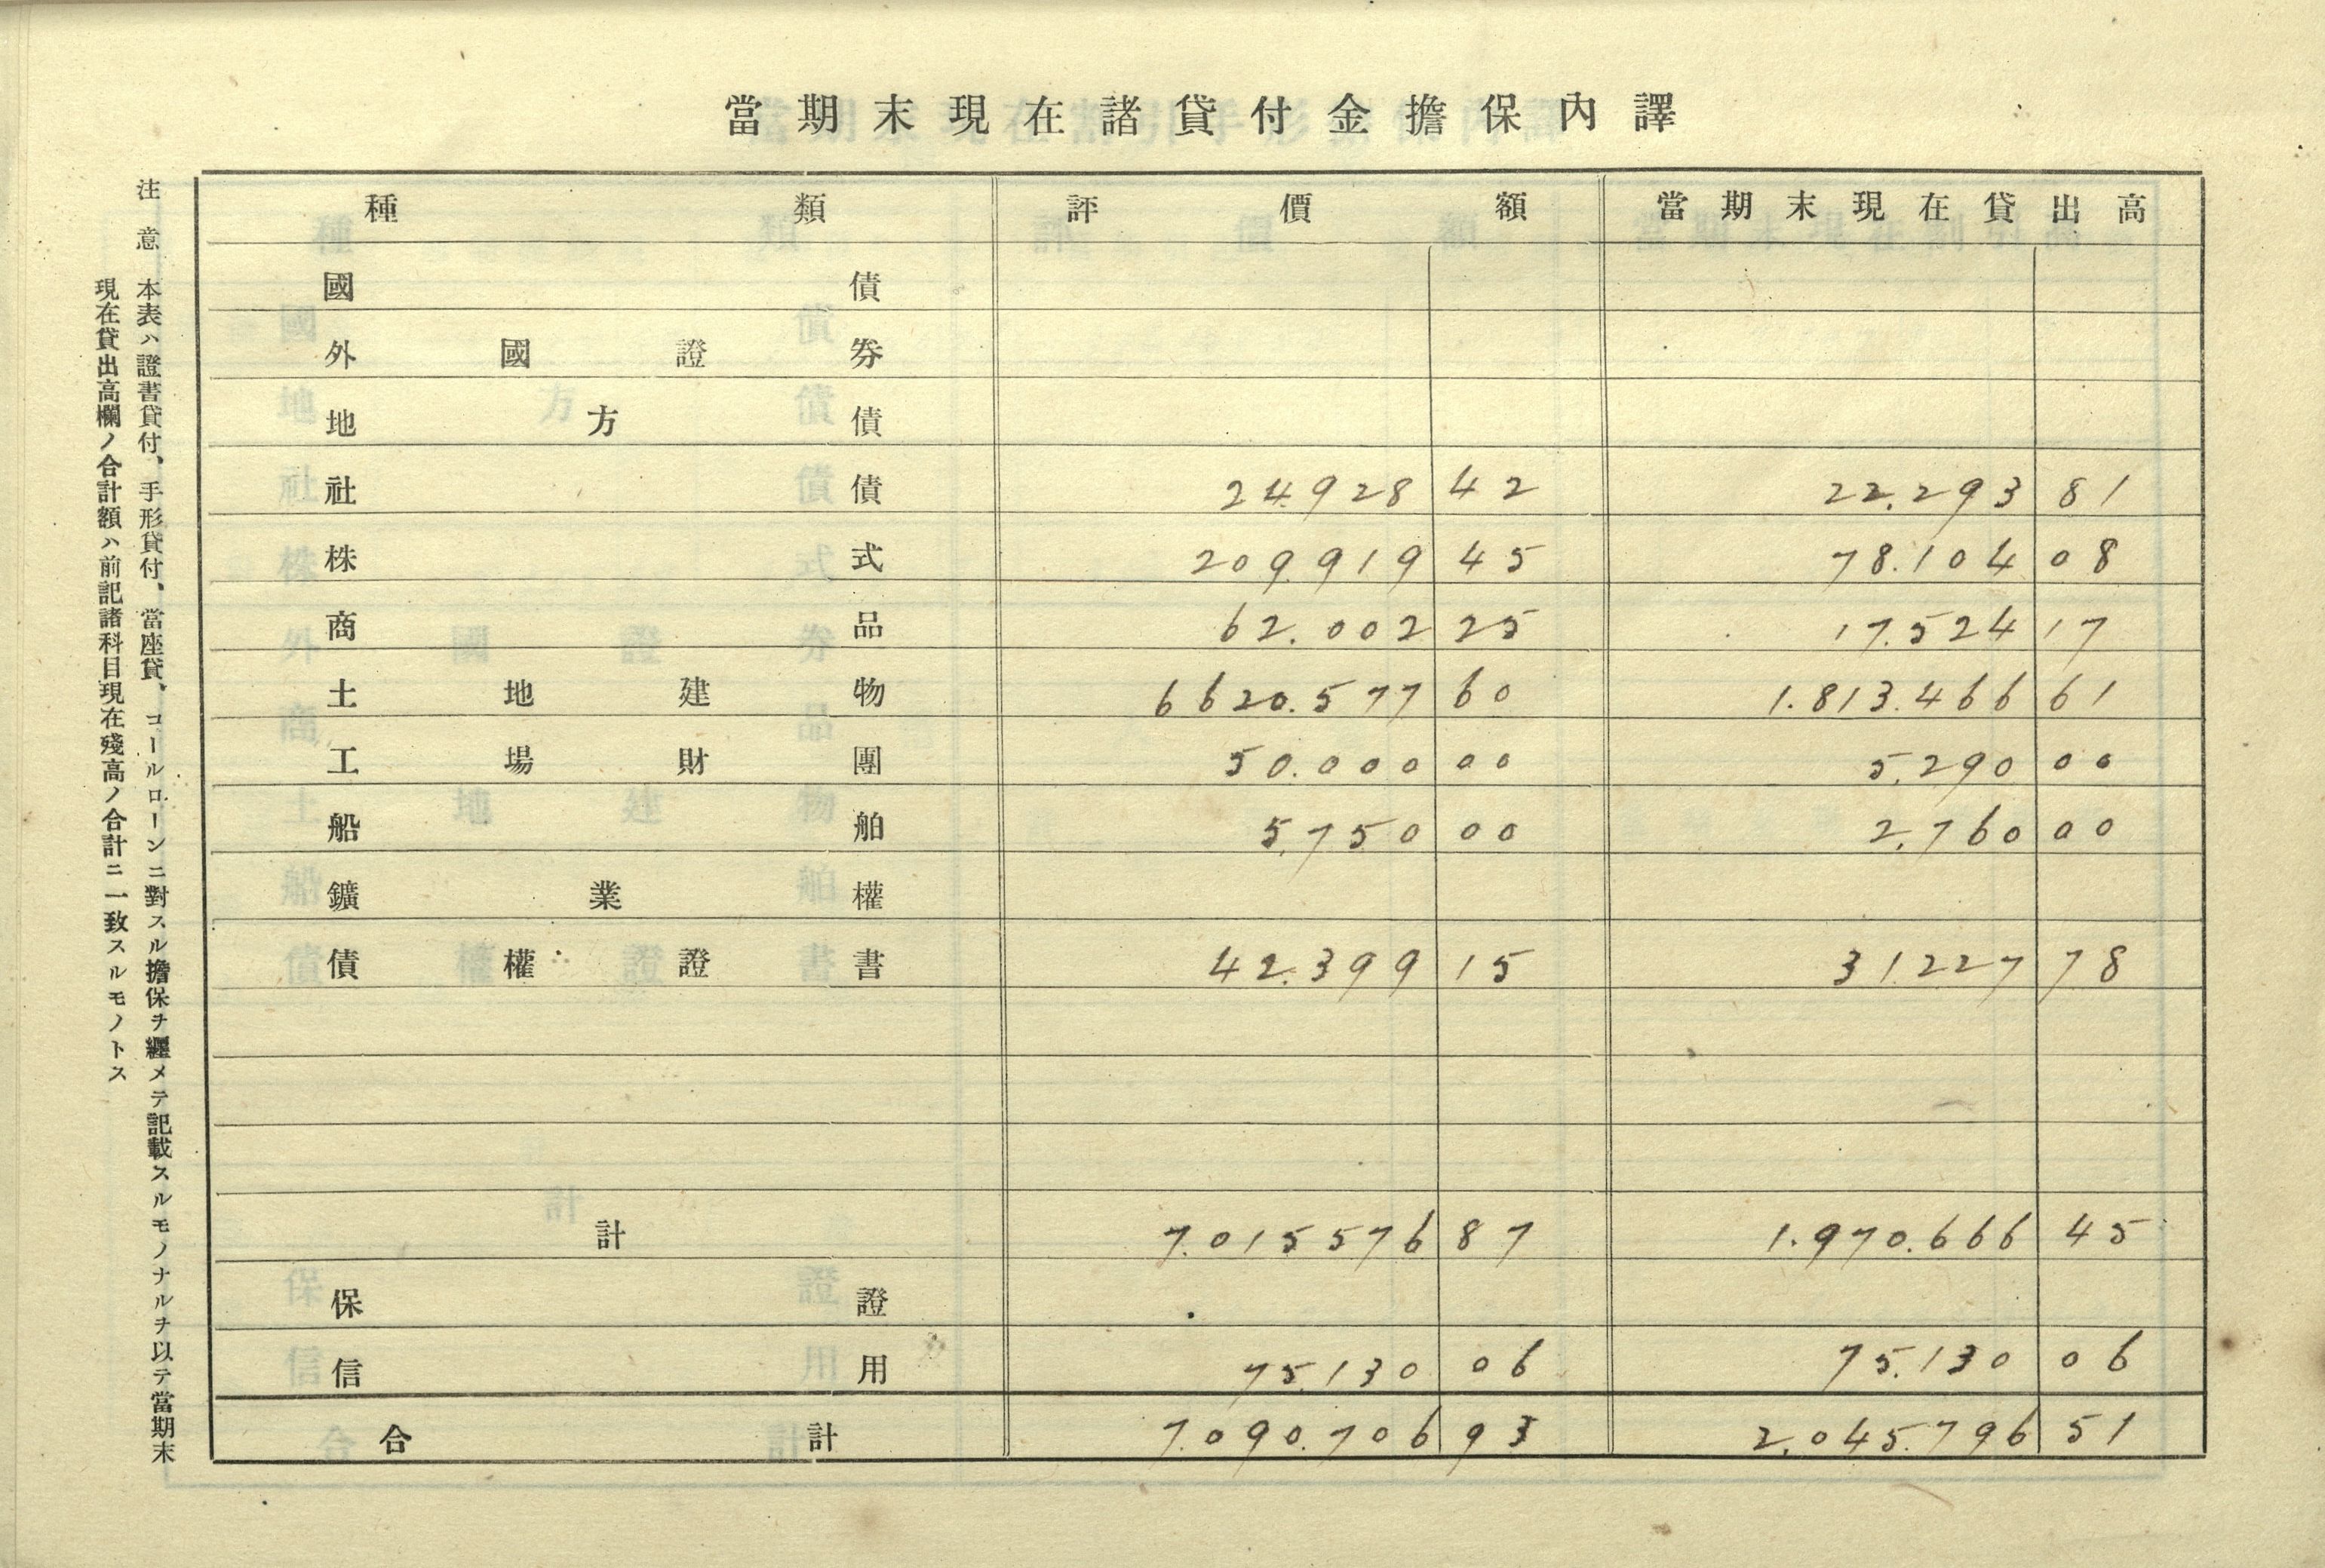 當期末現在諸貸付金擔保內譯
種類 評價額 當期末現在貸出高
國債
外國證券
地方債
社債 24.928 42 22.293 81
株式 209.919 45 78.104 08
商品 62.002 25 17.524 17
土地建物 6620.577 60 1.813.466 61
工場財團 50.000 00 5.290 00
船舶 5.750 00 2.760 00
鑛業權
債權證書 42.399 15 31227 78
計 7.015576 87 1.970.666 45
保證
信用 75.130 06 75.130 06
合計 7.090.706 93 2.045.796 51
注意 本表ハ證書貸付、手形貸付、當座貸、コールローンニ對スル擔保ヲ纒メテ記載スルモノナルヲ以テ當期末
現在貸出高欄ノ合計額ハ前記諸科目現在殘高ノ合計ニ一致スルモノトス